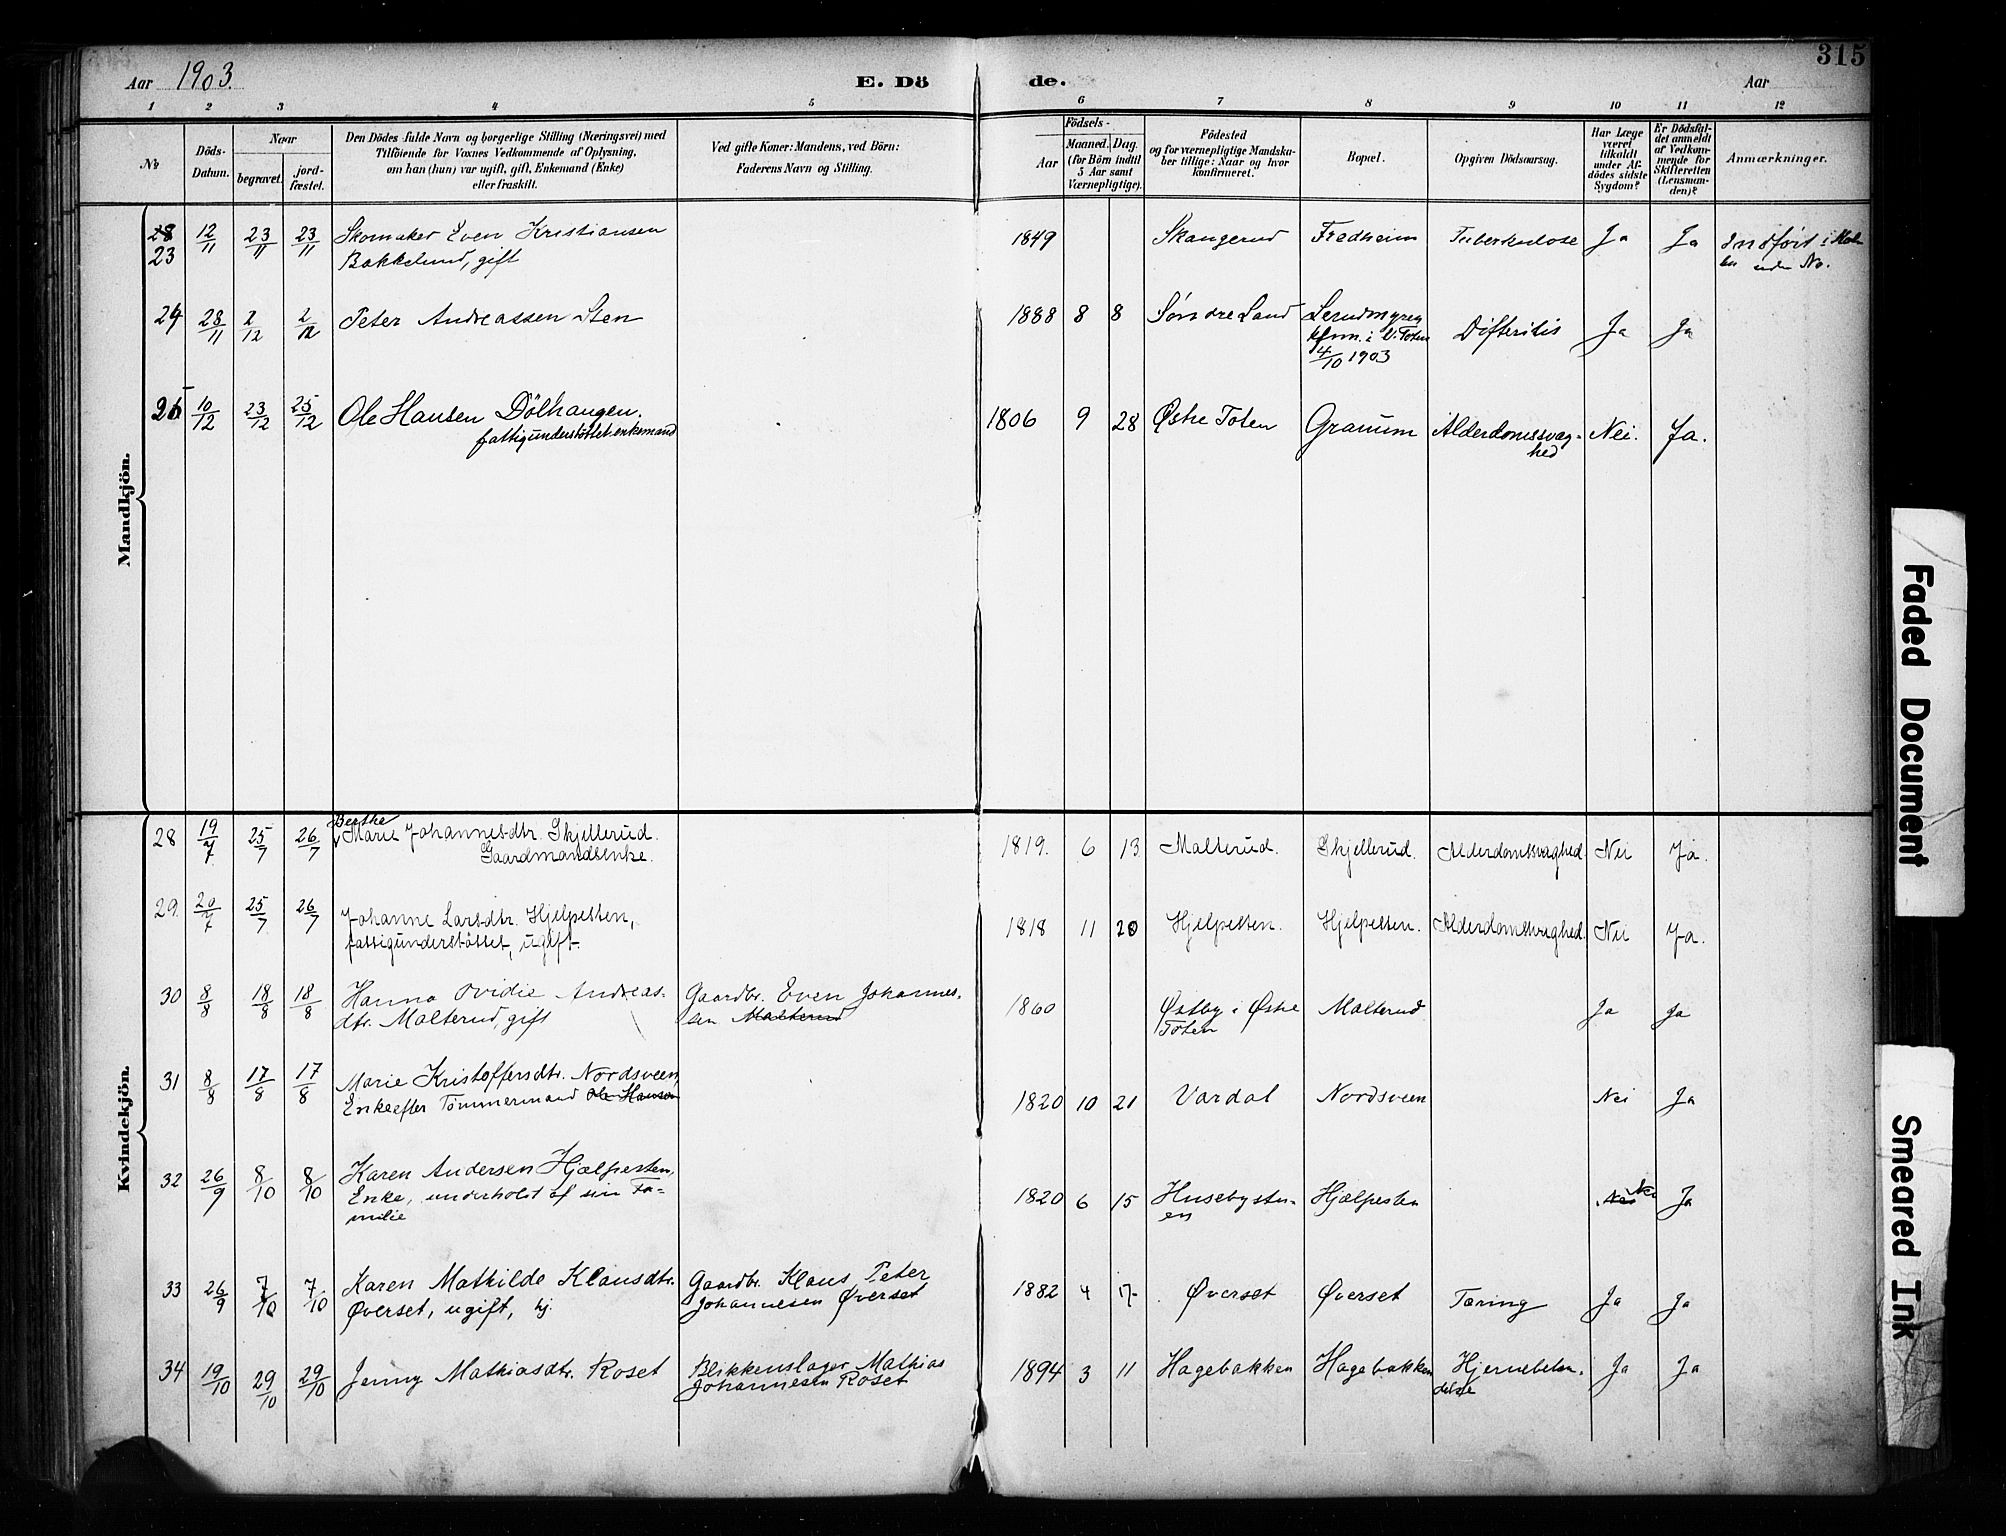 315
Aar 1903.
E. Dö de.
Aar
1 2 3 4 5 6 7 8 9 10 11 12
No
Döds-
Datum.
Naar
begravet.
jord-
fæstet.
Den Dödes fulde Navn og borgerlige Stilling (Næringsvei) med
Tilföiende for Voxnes Vedkommende af Oplysning,
om han (hun) var ugift, gift, Enkemand (Enke)
eller fraskilt.
Ved gifte Koner: Mandens, ved Börn:
Faderens Navn og Stilling.
Födsels-
Aar
Maaned, Dag.
(for Börn indtil
5 Aar samt
Værnepligtige).
Födested
og for værnepligtige Mandska-
ber tillige: Naar og hvor
konfirmeret.
Bopæl.
Opgiven Dödsaarsag.
Har Læge
været
tilkaldt
under Af-
dödes sidste
Sygdom?
Er Dödsfal-
det anmeldt
af Vedkom-
mende for
Skifteretten
(Lensman-
den)?
Anmærkninger.
Mandkjön.
28
23 12/11 23/11 23/11 Skomaker Even Kristiansen
Bakkelund, gift
1849 Skangerud Fredheim Tuberkulose Ja Ja Indført i
under No.
24 28/11 2/12 2/12 Peter Andreassen Sten
1888 8 8 Søndre Land Lerudmyren
i V. Toten
4/10 1903
Difteritis Ja Ja
25 10/12 23/12 25/12 Ole Hansen Dölhaugen.
fattigunderstöttet enkemand
1806 9 28 Østre Toten Granum Alderdomssvag-
hed
Nei. Ja.
Kvindekjön.
28 19/7 25/7 26/7 Berthe
Marie Johannesdtr. Skjellerud.
Gaardmandsenke.
1819. 6 13 Malterud. Skjellerud. Alderdomssvaghed. Nei Ja.
29. 20/7 25/7 26/7 Johanne Larsdtr. Hjelpesten,
fattigunderstöttet, ugift.
1818 11 20 Hjelpesten. Hjelpesten. Alderdomssvaghed. Nei Ja.
30 8/8 18/8 18/8 Hanna Ovidie Andreas-
dtr. Malterud, gift
Gaardbr. Even Johannes-
sen Malterud
1860 Østby i Østre
Toten
Malterud Ja Ja
31 8/8 17/8 17/8 Marie Kristoffersdtr. Nordsveen,
Enke efter Tømmermand Ole Hansen
1820 10 21 Vardal Nordsveen Nei Ja
32 26/9 8/10 8/10 Karen Andersen Hjælpesten,
Enke, underholdt af sin Fa-
milie
1820 6 15 Husebystu-
en
Hjælpesten Nei Nei Ja
33 26/9 7/10 7/10 Karen Mathilde Klausdtr.
Øverset, ugift, hj.
Gaardbr. Klaus Peter
Johannesen Øverset
1882 4 17 Øverset Øverset Tæring Ja Ja
34 19/10 29/10 29/10 Jenny Mathiasdtr. Roset
Blikkenslager Mathias
Johannesen Roset
1894 3 11 Hagebakken Hagebakken Hjernebetæn-
delse
Ja Ja
Faded Document
Smeared Ink